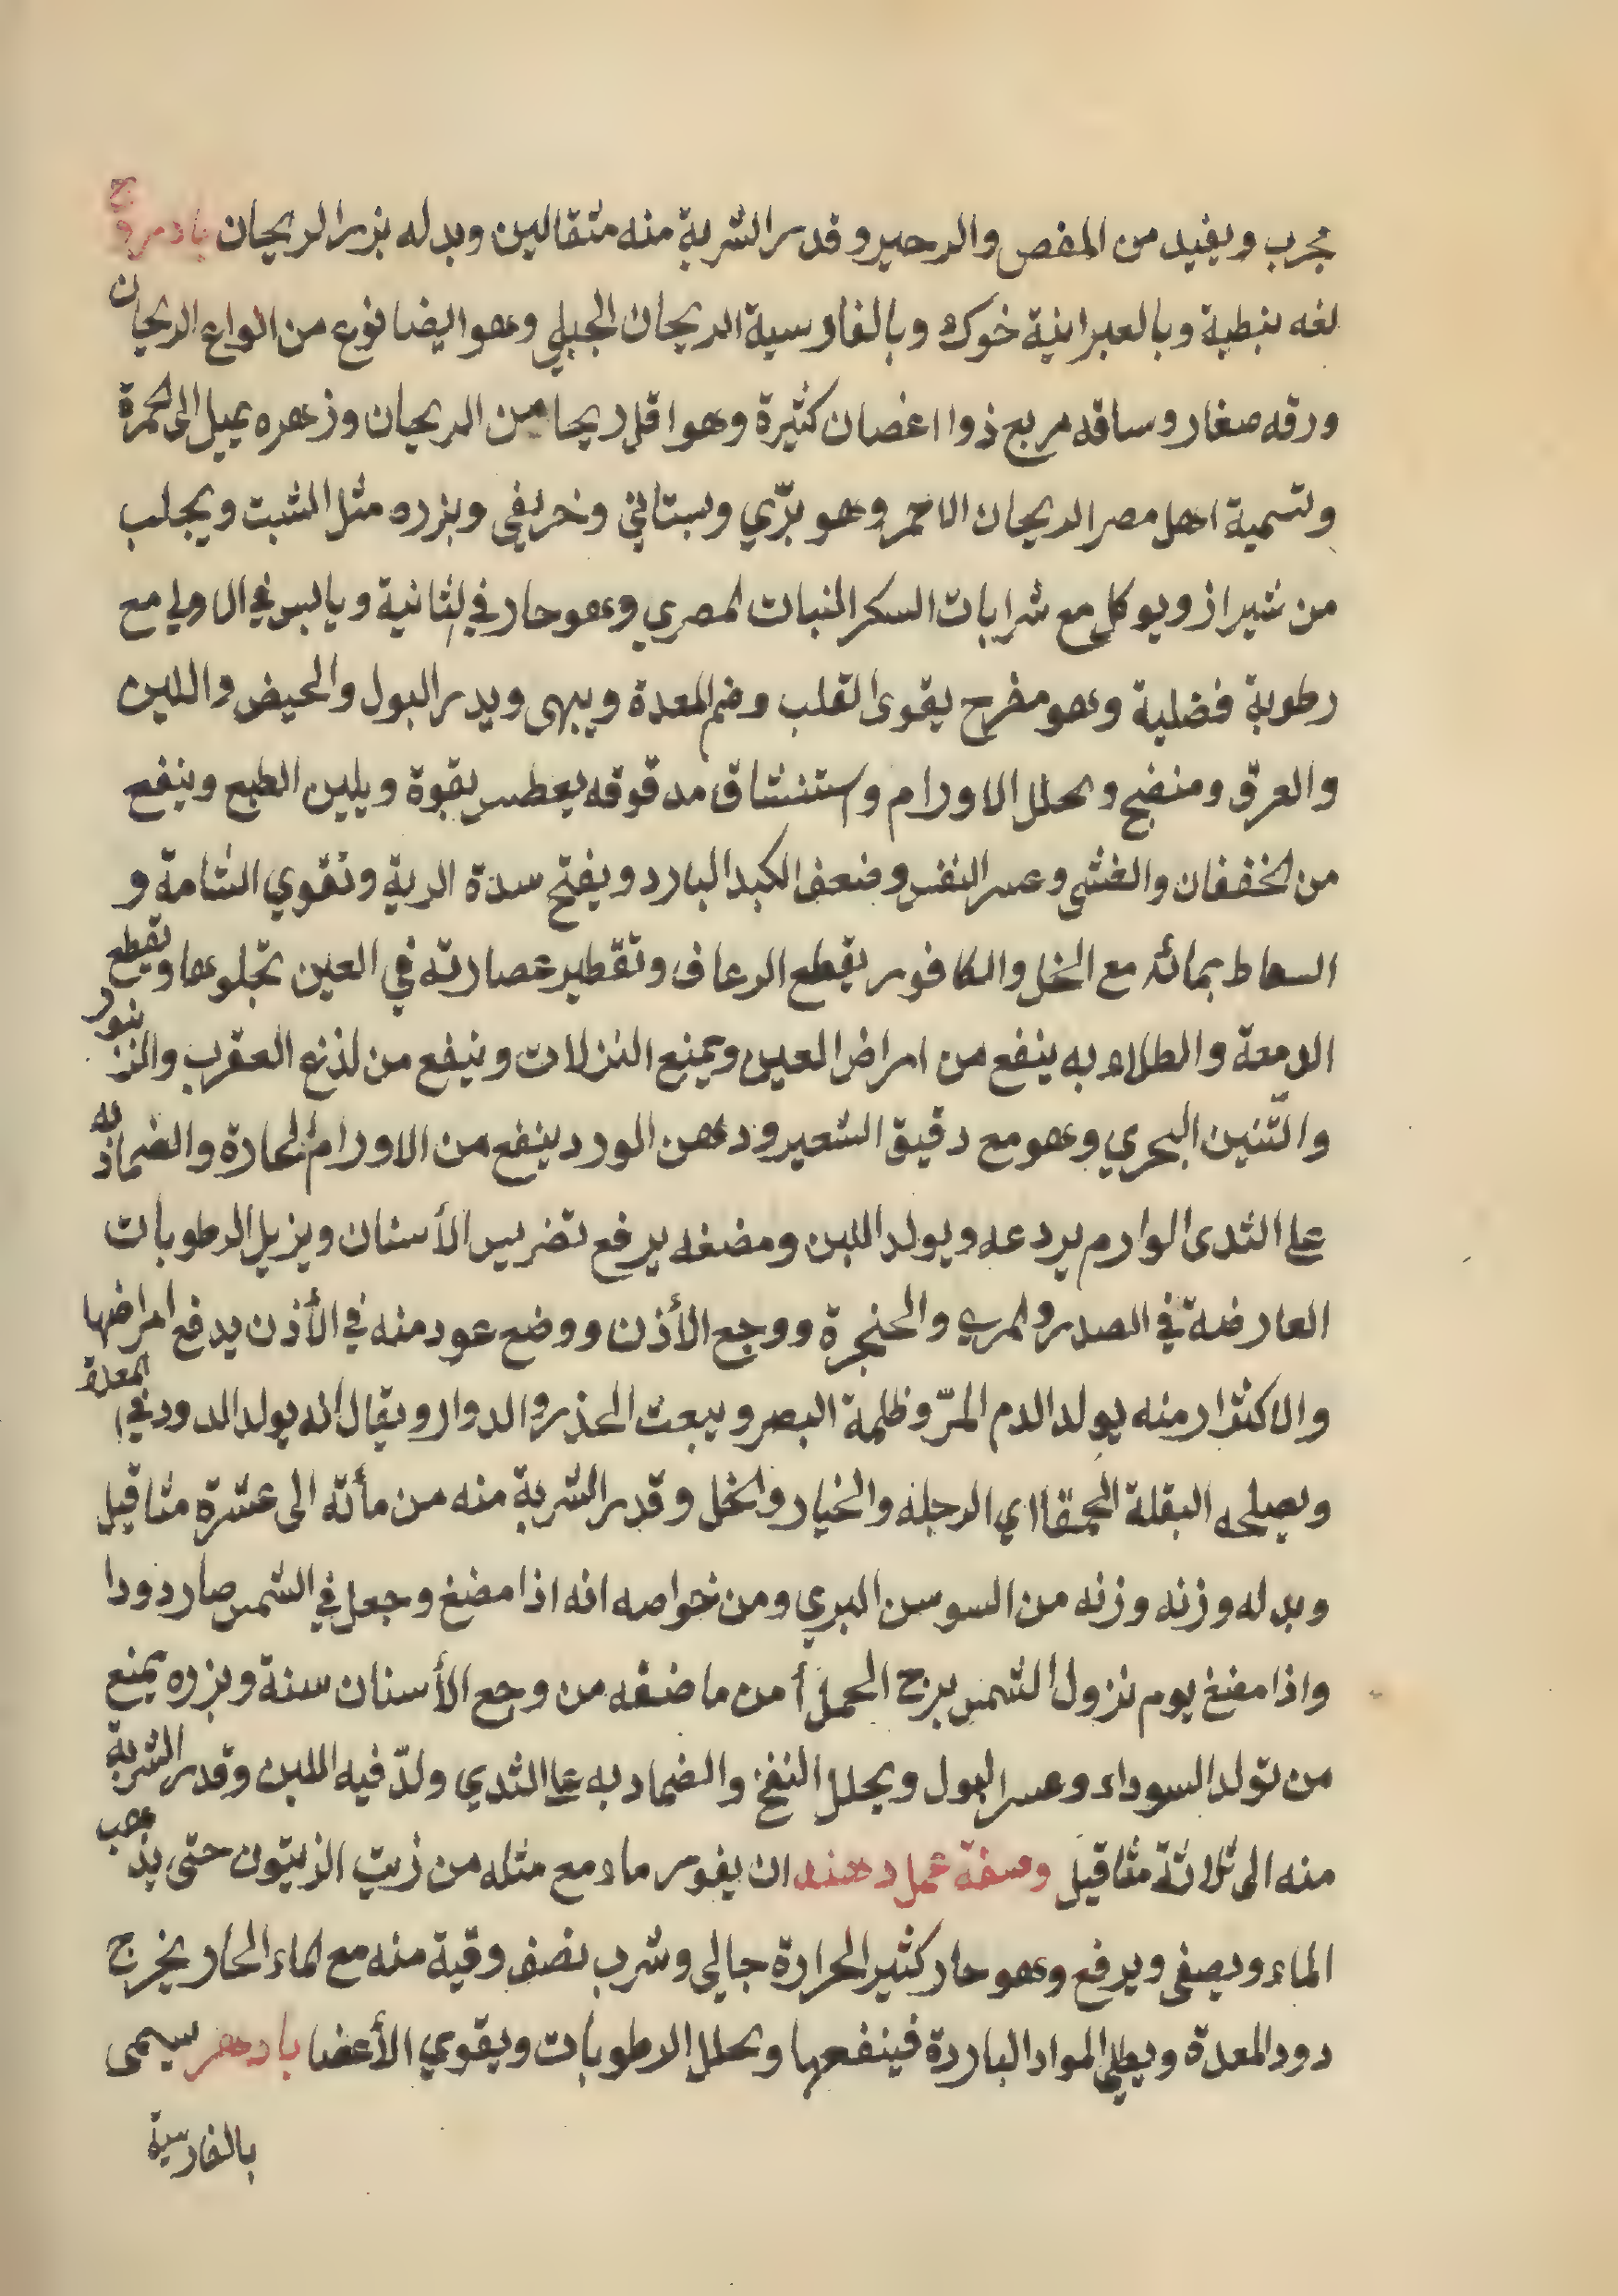 مجرب ويفيد من المغص والزحير وقدر الشربة منه مثقالين وبدله بزر الريحان بادروج
لغه نبطية وبالعبرانية خوك وبالفارسية الريحان الجبلي وهو ايضا نوع من انواع الريحان
ورقه صغار وساقه مربع ذوا اغصان كثيرة وهو اقل ريحا من الريحان وزهره يميل الى الحمرة
وتسمية اهل مصر الريحان الاحمر وهو برّي وبستاني وخريفي وبزره مثل الشبت ويجلب
من شيراز ويوكل مع شرابات السكر النبات المصري وهو حار في الثانية ويابس في الاولى مع
رطوبة فضلية وهو مفرح يقوى القلب وفم المعدة ويبهى ويدر البول والحيض واللبن
والعرق ومنضج ومحلل الاورام واستنشاق مدقوقه يعطس بقوة ويلين الطبع وينفع
من الخفقان والغشى وعسر النفس وضعف الكبد البارد ويفتح سدة الرية وتقوي الشامة و
السعاط بمائه مع الخل والكافور يقطع الرعاف وتقطير عصارته في العين تجلوها ويقطع
الدمعة والطلاء به ينفع من امراض العين ويمنع النزلات وينفع من لذع العقرب والزنبور
والتّنين البحري وهو مع دقيق الشعير ودهن الورد ينفع من الاورام الحارة والضماد به
على الثدى الوارم يردعه ويولد اللبن ومضغه يرفع تضريس الأسنان ويزيل الرطوبات
العارضة في الصدر والمري والحنجرة ووجع الأذن ووضع عود منه في الأذن يدفع امراضها
والاكثار منه يولد الدم المرّ وظلمة البصر ويبعث الحذر والدوار ويقال انه يولد الدود في المعدة
ويصلحه البقلة الحمقا اي الرجله والخيار والخل وقدر الشربة منه من مأته الى عشرة مثاقيل
وبدله وزنه وزنه من السوسن البري ومن خواصه انه اذا مضغ وجعل في الشمس صار دودا
واذا مضغ يوم نزول الشمس برج الحمل أمن ماضغه من وجع الأسنان سنة وبزره يمنع
من تولد السوداء وعسر البول ويحلل النفخ والضماد به على الثدي ولدّ فيه اللبن وقدر الشربة
منه الى ثلاثة مثاقيل وصفة عمل دهنه ان يفور ماء مع مثله من زيت الزيتون حتى يذهب
الماء ويصفى ويرفع وهو حار كثير الحرارة جالي وشرب نصف وقية منه مع الماء الحار يخرج
دود المعدة ويطلى المواد الباردة فينفعها ومحلل الرطوبات ويقوي الأعضا بادزهر سيمى
بالفارسية